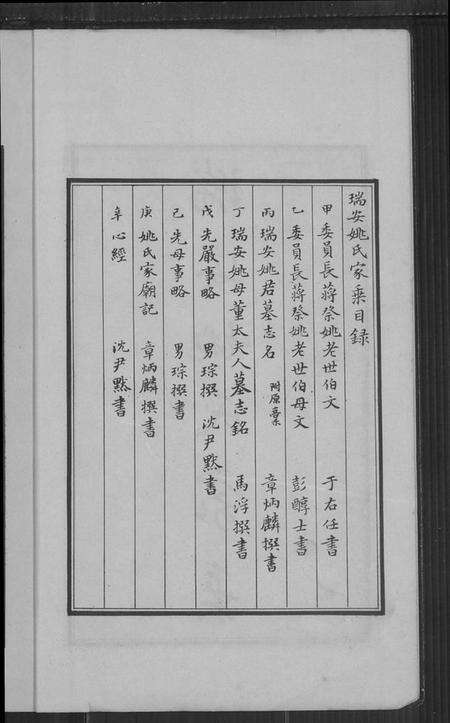 瑞安姚氏家乘目録
甲 委員長蔣祭姚老世伯文 于右任書
乙 委員長蔣祭姚老世伯母文 彭醇士書
丙 瑞安姚君墓志名 附原藁 章炳麟撰書
丁 瑞安姚母董太夫人墓志銘 馬浮撰書
戊 先嚴事略 男琮撰 沈尹默書
己 先母事略 男琮撰書
庚 姚氏家廟記 章炳麟撰書
辛 心經 沈尹默書